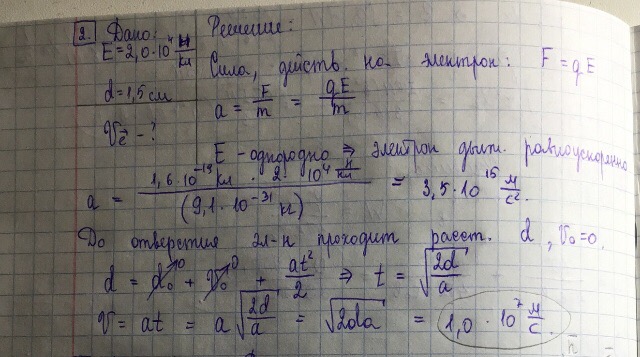 2. Дано: Решение:
E = 2,0·10⁴ Н/кл
Сила, действ. на электрон: F = qE
d = 1,5 см
a = F/m = qE/m
V_ē - ?
E - однородно ⇒ электрон движ. равноускоренно
a = 1,6·10⁻¹⁹ кл · 2 · 10⁴ Н/кл / (9,1·10⁻³¹ кг) = 3,5·10¹⁵ м/с².
До отверстия эл-н проходит расст. d, V₀=0.
d = d₀ + V₀ + at²/2 ⇒ t = √(2d/a)
V = at = a√(2d/a) = √(2da) = 1,0 · 10⁷ м/с.